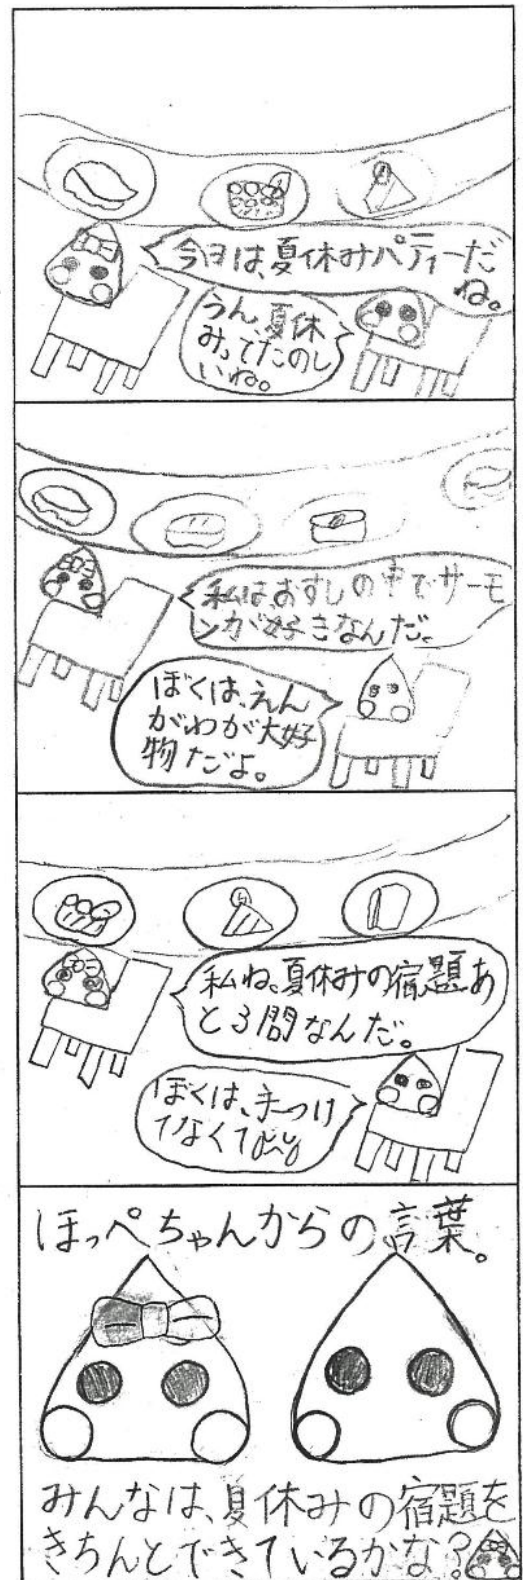 今日は、夏休みパティーだ
ね。
うん、夏休
みってたのし
いね。
私は、おすしの中でサーモ
ンが好きなんだ。
ぼくは、えん
がわが大好
物だよ。
私ね、夏休みの宿題あ
と3問なんだ。
ぼくは、手つけ
てなくて
ほっぺちゃんからの言葉。
みんなは、夏休みの宿題を
きちんとできているかな?